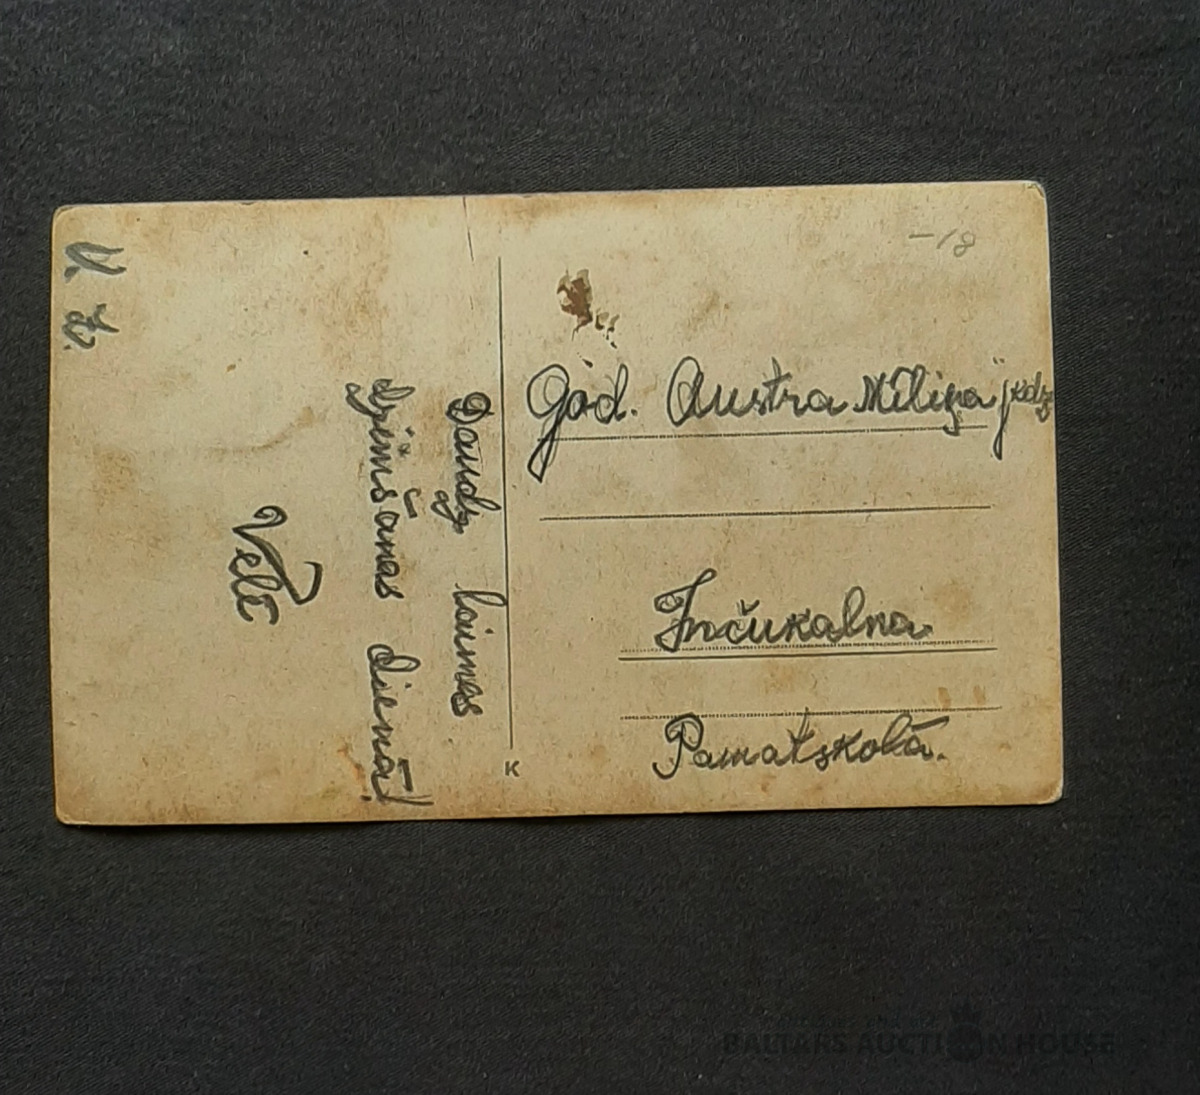 Daudz laimes
dzimšanas dienā!
Vēlē
V. Z.
K
-18
God. Austra Mīliņa jkdz
Inčukalna
Pamatskolā.
BALTARS AUCTION HOUSE